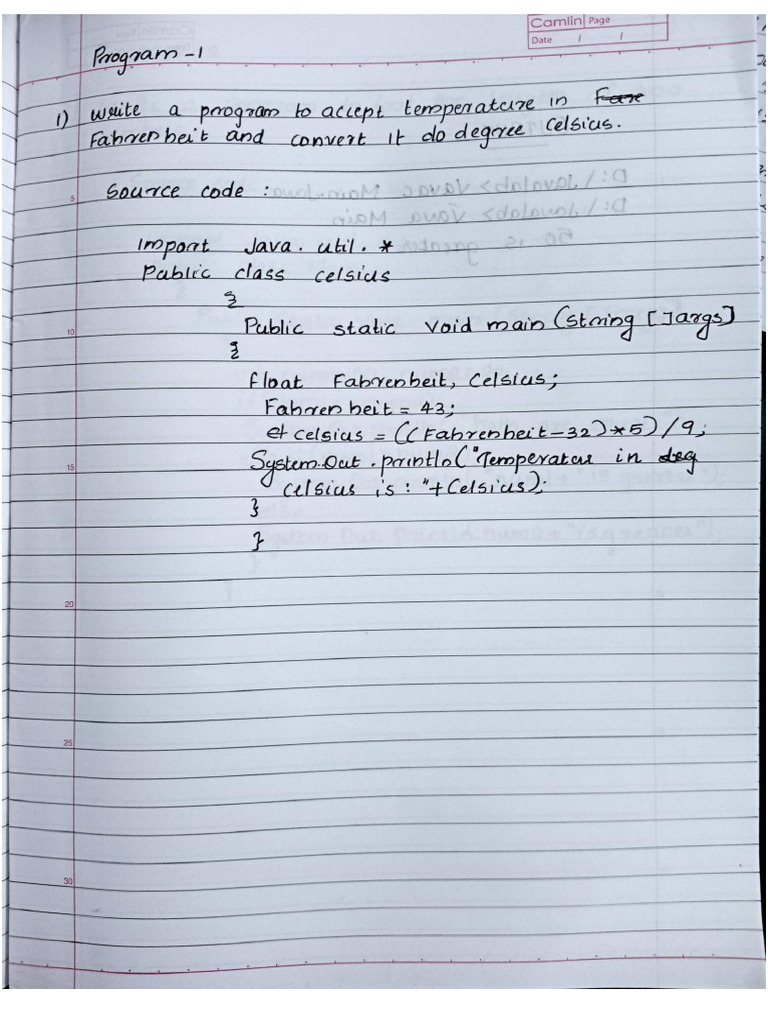 Camlin Page
Date / /
Program - 1
1) Write a program to accept temperature in
Fahrenheit and convert it do degree Celsius.
5
Source code :
Import Java. util. *
Public class celsius
{
10
Public static void main (string []args]
{
float Fahrenheit, Celsius;
Fahrenheit = 43;
celsius = ((Fahrenheit-32)*5)/9;
15
System.Out.println("Temperatur in deg
celsius is : "+Celsius);
}
}
20
25
30